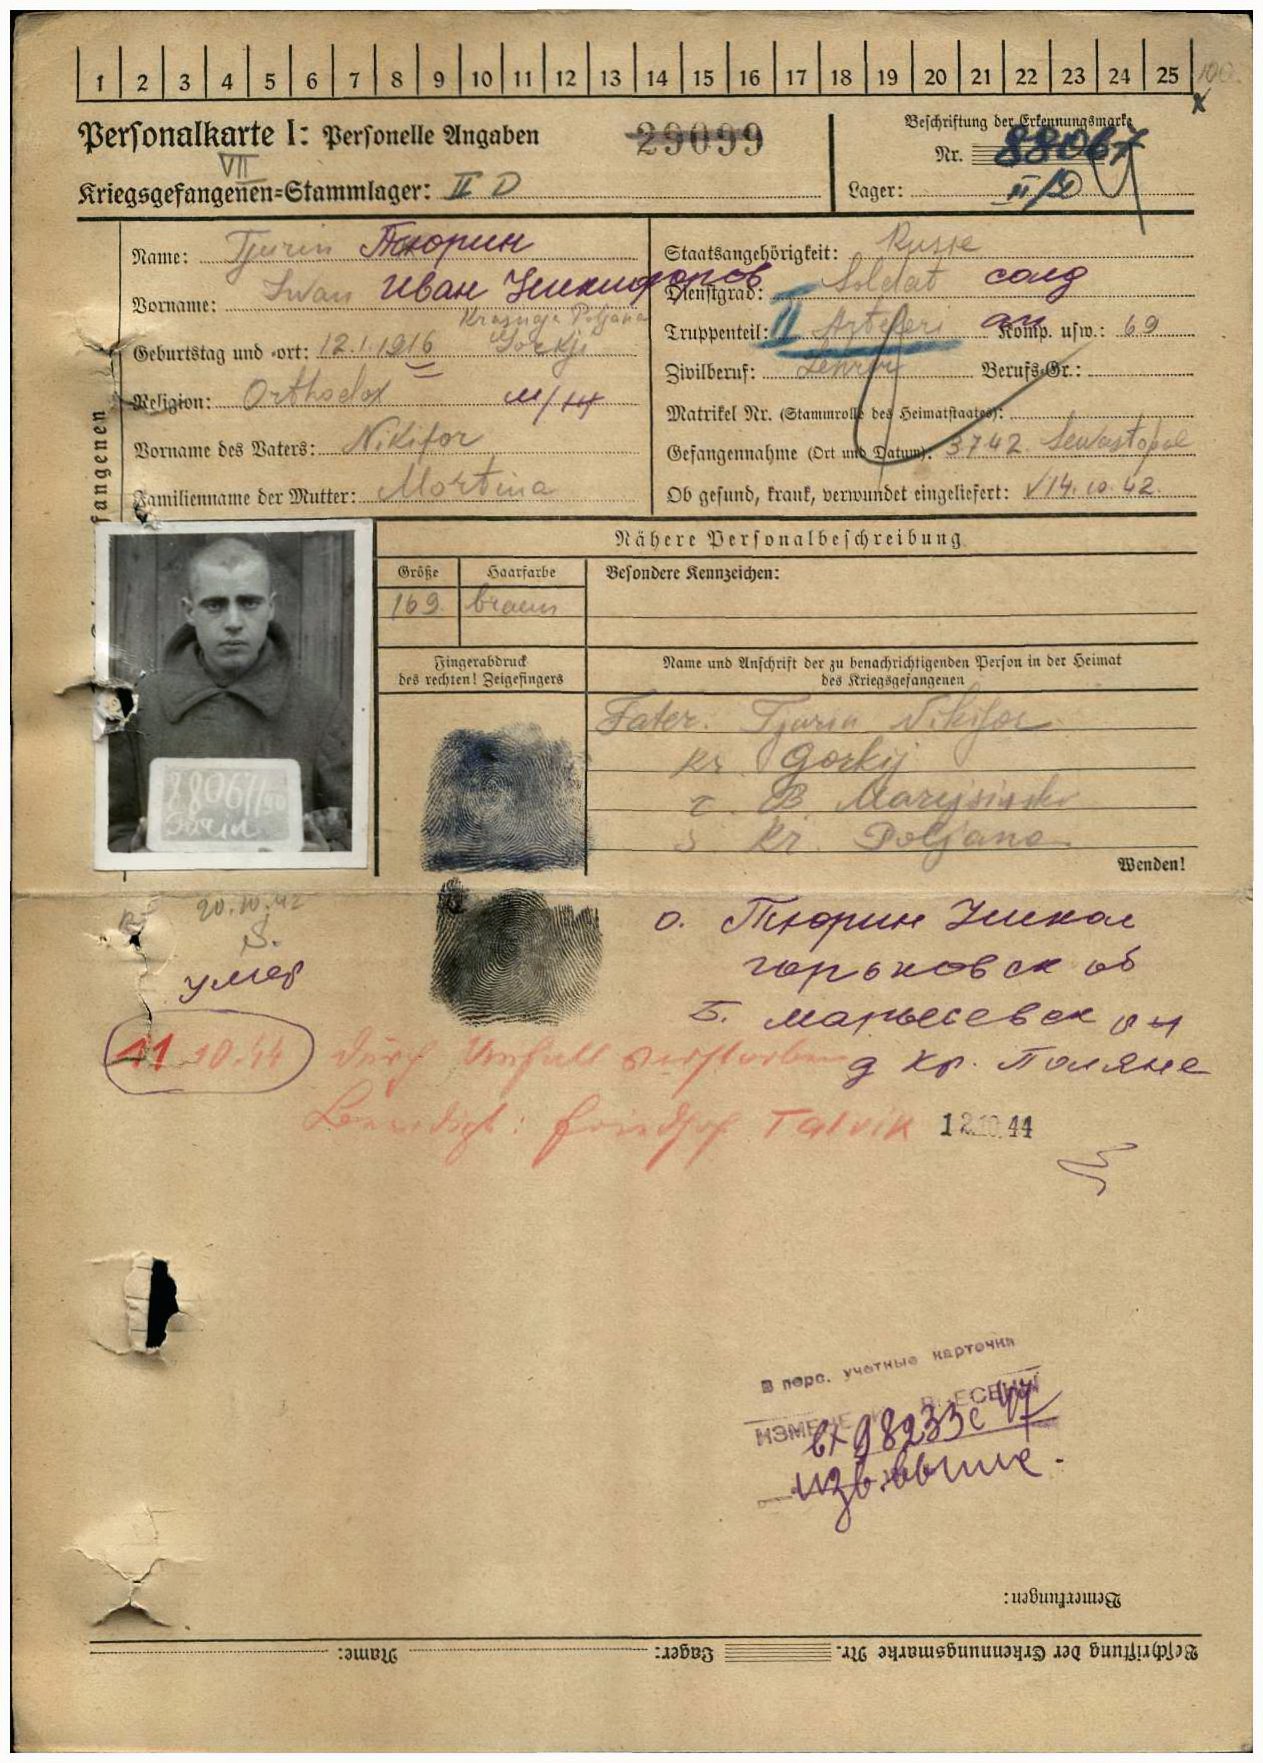 1 2 3 4 5 6 7 8 9 10 11 12 13 14 15 16 17 18 19 20 21 22 23 24 25 100
Personalkarte I: Personelle Angaben
29099
Beschriftung der Erkennungsmarke
Nr. 88067
VII
Kriegsgefangenen=Stammlager: II D
Lager: II/D
Name: Tjurin Тюрин
Vorname: Iwan Иван Никифоров
Krasnaja Poljana
Geburtstag und -ort: 12.1.1916 Gorkji
Religion: Orthodox
Vorname des Vaters: Nikifor
Familienname der Mutter: Mortina
Staatsangehörigkeit: Russe
Dienstgrad: Soldat солд
Truppenteil: II Artileri Komp. usw.: 69
Zivilberuf: Lehrer Berufs-Gr.:
Matrikel Nr. (Stammrolle des Heimatstaates):
Gefangennahme (Ort und Datum): 3.7.42. Sewastopol
Ob gesund, krank, verwundet eingeliefert: √14.10.42.
fangenen
Nähere Personalbeschreibung
Größe Haarfarbe Besondere Kennzeichen:
169. braun
Fingerabdruck
des rechten! Zeigefingers
Name und Anschrift der zu benachrichtigenden Person in der Heimat
des Kriegsgefangenen
Fater. Tjurin Nikifor
Kr. Gorkij
r. B. Marejsinski
s. Kr. Poljana.
Wenden!
88067
20.10.42
S.
умер
11.10.44 durch Unfall verstorben
Beerdigt: Friedhof Talvik 12.10.44
о. Тюрин Никол
горьковск об
Б. марьесевск рн
д кр. Поляне
В перс. учетные карточки
ИЗМЕНЕНИЯ ВНЕСЕНЫ
вх 98233с 47
изв. выше.
Bemerkungen:
Beschriftung der Erkennungsmarke Nr. Lager: Name: